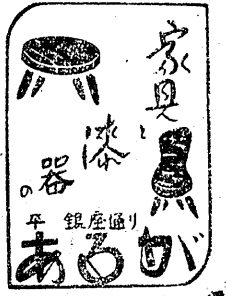 家具
と
漆
器
の
平 銀座通り
あるが